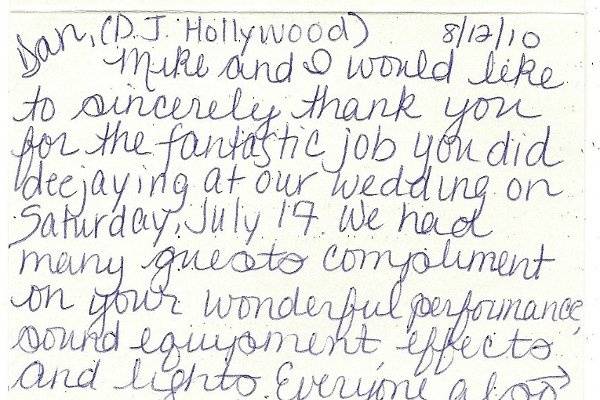 Dan, (D.J. Hollywood) 8/12/10
Mike and I would like
to sincerely thank you
for the fantastic job you did
deejaying at our wedding on
Saturday, July 17. We had
many guests compliment
on your wonderful performance,
sound equipment effects
and lights. Everyone also →